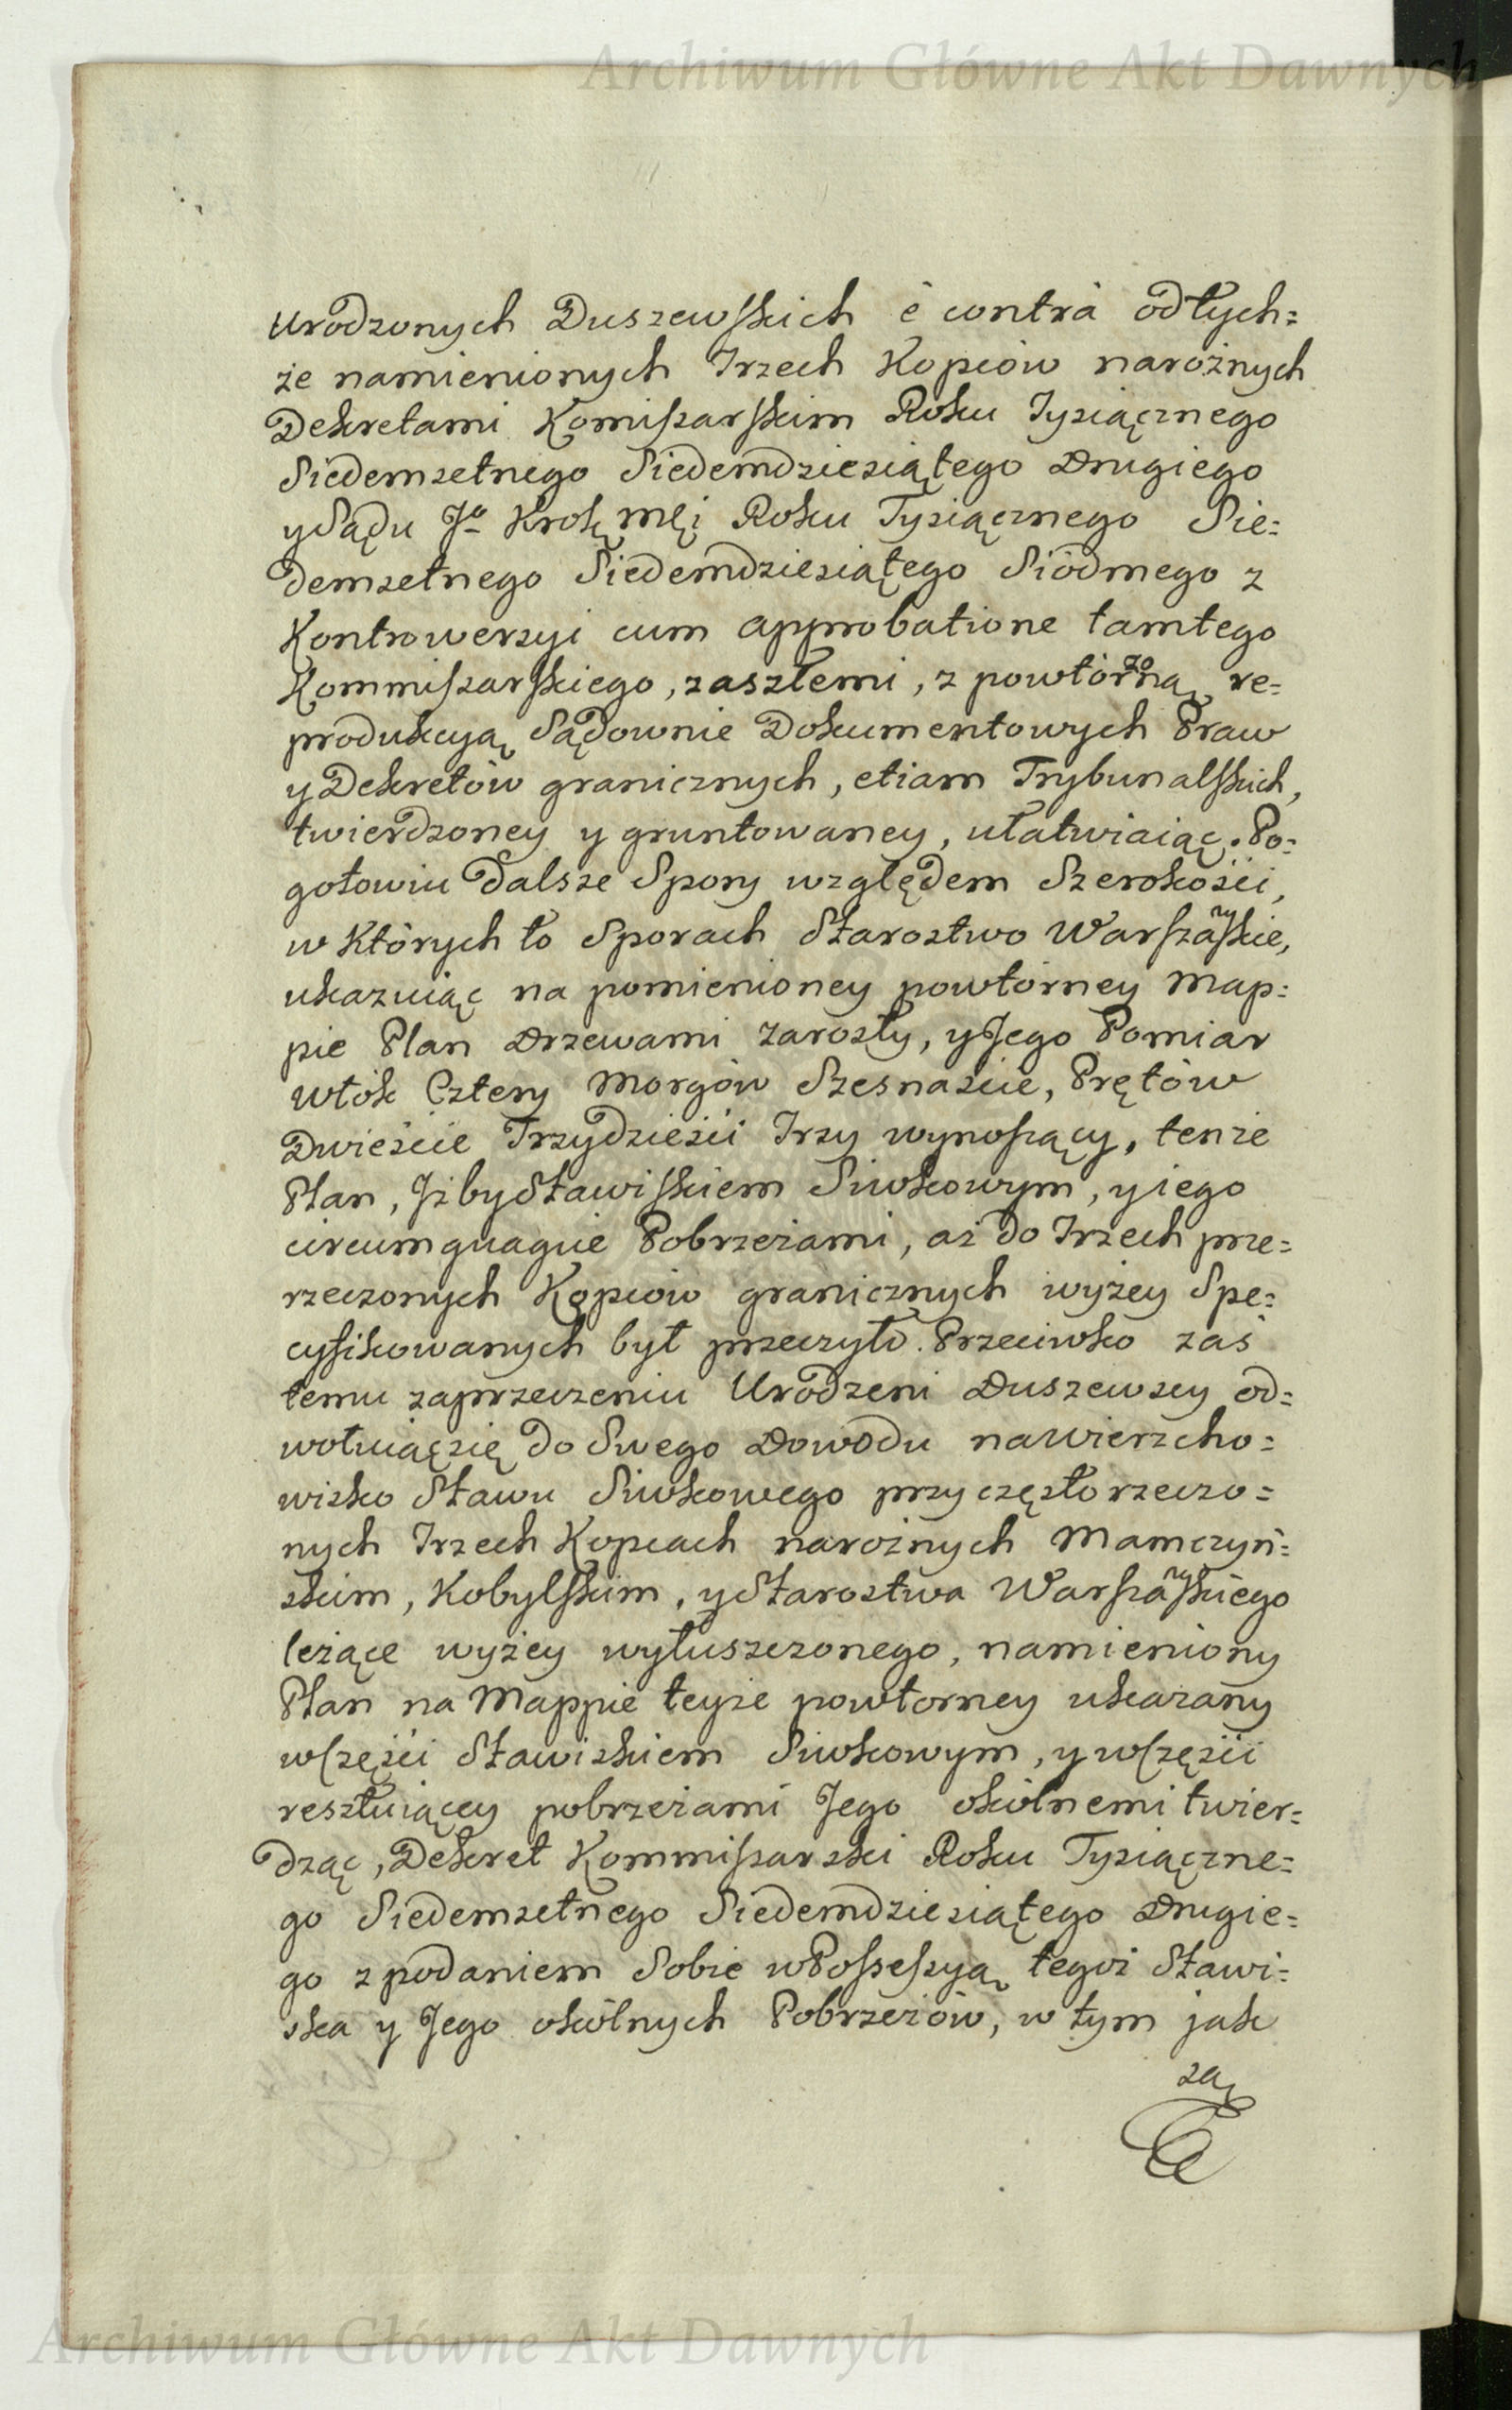 Archiwum Główne Akt Dawnych
Urodzonych Duszewskich è contrà odtych=
że namienionych Trzech Kopców narożnych
Dekretami Komissarskim Roku Tysiącznego
Siedemsetnego Siedemdziesiątego Drugiego
y Sądu Jº Krolę Mći Roku Tysiącznego Sie=
demsetnego Siedemdziesiątego Siódmego z
Kontrowersyi cum approbatione tamtego
Kommissarskiego, zaszłemi, z powtórną re=
produkcyą Sądownie Dokumentowych Praw
y Dekretów granicznych, etiam Trybunalskich,
twierdzoney y gruntowaney, ułatwiaiąc. Po=
gotowiu dalsze Spory względem Szerokości,
w Których to Sporach Starostwo Warszawskie,
ukazuiąc na pomienioney powtórney Map=
pie Plan Drzewami zarosły, y Jego Pomiar
włók Cztery Morgów Szesnaście, Prętów
Dwieście Trzydzieści Trzy wynoszący, tenże
Plan, Jżby Stawiskiem Siwkowym, y iego
circumquaque Pobrzeżami, aż do Trzech prze=
rzeczonych Kopców granicznych wyżey Spe=
cyfikowanych był przeczyło. Przeciwko zaś
temu zaprzeczeniu Urodzeni Duszewscy od=
wołuiąc się do Swego Dowodu na wierzcho=
wisko Stawu Siwkowego przy często rzeczo=
nych Trzech Kopcach narożnych Mamczyń=
skim, Kobylskim, y Starostwa Warszawskiego
leżące wyżey wyłuszczonego, namieniony
Plan na Mappie teyże powtorney ukazany
w Części Stawiskiem Siwkowym, y w Części
resztuiącey pobrzeżami Jego okolnemi twier=
dząc, Dekret Kommissarski Roku Tysiączne=
go Siedemsetnego Siedemdziesiątego Drugie=
go z podaniem Sobie w Possessyą tegoż Stawi=
ska y Jego okólnych Pobrzeżów, w tym jak
zaś
Archiwum Główne Akt Dawnych